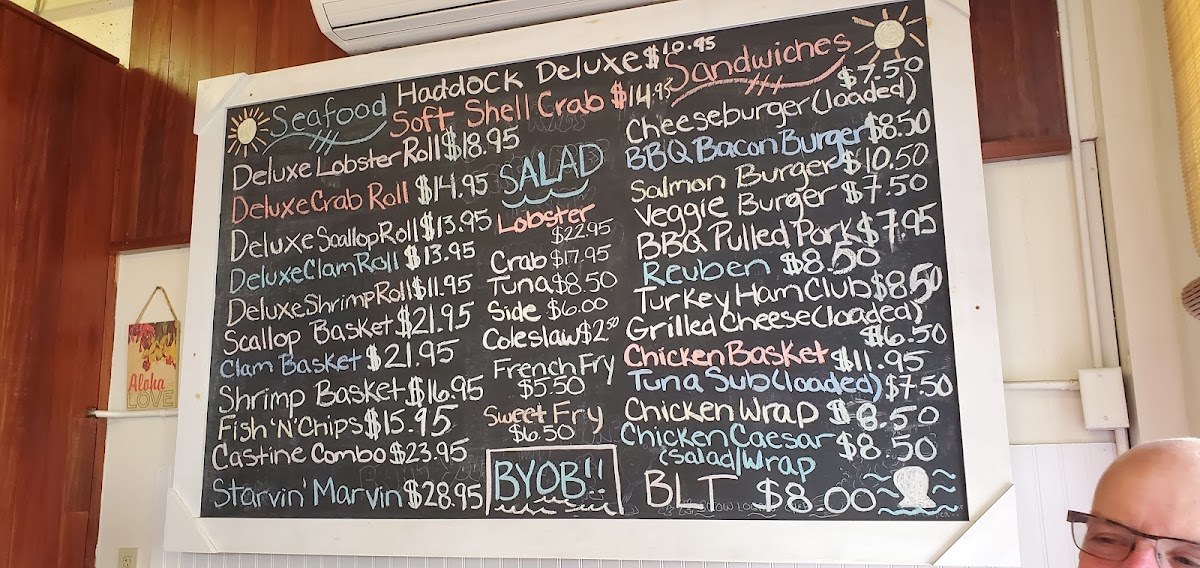 Haddock Deluxe $10.95
Soft Shell Crab $14.95
Seafood
Deluxe Lobster Roll $18.95
Deluxe Crab Roll $14.95
Deluxe Scallop Roll $13.95
Deluxe Clam Roll $13.95
Deluxe Shrimp Roll $11.95
Scallop Basket $21.95
Clam Basket $21.95
Shrimp Basket $16.95
Fish 'N' Chips $15.95
Castine Combo $23.95
Starvin' Marvin $28.95
SALAD
Lobster
$22.95
Crab $17.95
Tuna $8.50
Side $6.00
Coleslaw $2.50
French Fry
$5.50
Sweet Fry
$6.50
BYOB!!
Sandwiches
$7.50
Cheeseburger (loaded)
BBQ Bacon Burger $8.50
Salmon Burger $10.50
Veggie Burger $7.50
BBQ Pulled Pork $7.95
Reuben $8.50
Turkey Ham Club $8.50
Grilled Cheese (loaded)
$6.50
Chicken Basket $11.95
Tuna Sub (loaded) $7.50
Chicken Wrap $8.50
Chicken Caesar $8.50
(salad/wrap
BLT $8.00
Aloha
LOVE